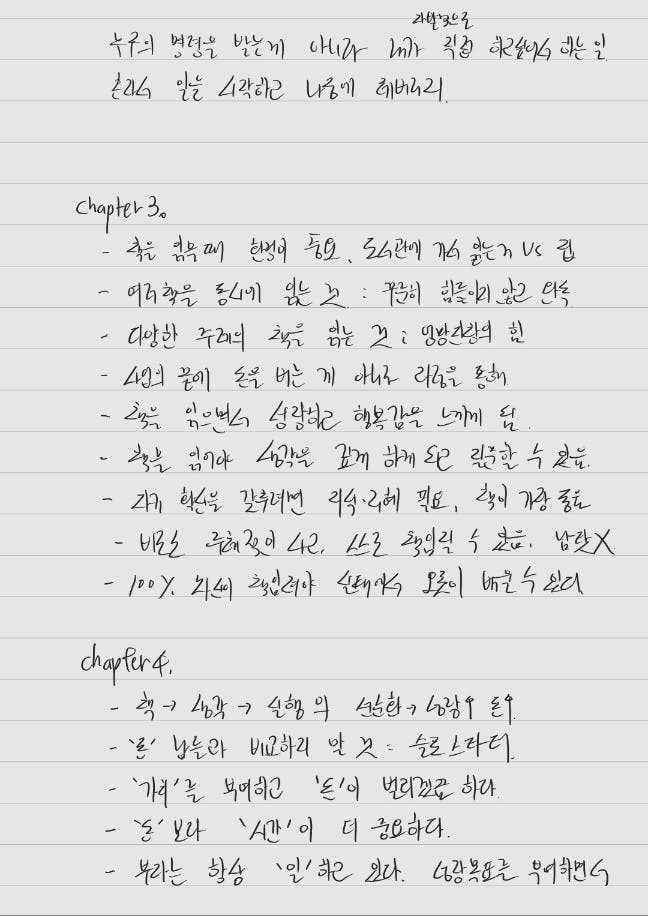 자발적으로
누구의 명령을 받는게 아니라 내가 직접 하고싶어서 하는 일
혼자서 일을 시작하고 나중에 레버리지.
chapter 3.
- 책을 읽을 때 환경이 중요, 도서관에 가서 읽는거 VS 집
- 여러책을 동시에 읽는 것 : 꾸준히 힘들이지 않고 완독
- 다양한 주제의 책을 읽는 것 :
- 사업의 끝에 돈을 버는 게 아니고 과정을 통해
- 책을 읽으면서 성장하고 행복감을 느끼게 됨.
- 책을 읽어야 생각을 깊게 하게 되고 집중할 수 있음.
- 자기 확신을 갖추려면 지식·지혜 필요, 책이 가장 좋음
- 비로소 주체적인 사고, 스스로 책임질 수 있음. 남탓X
- 100% 자신이 책임져야 실패에서 오롯이 배울 수 있다.
chapter 4.
- 책 → 생각 → 실행 의 선순환 → 성장↑ 돈↑
- '돈' 남들과 비교하지 말 것 = 슬로스타터.
- '가치'를 부여하고 '돈'이 벌리겠끔 하다.
- '돈' 보다 '시간'이 더 중요하다.
- 부자는 항상 '일'하고 있다. 성장목표를 부여하면서